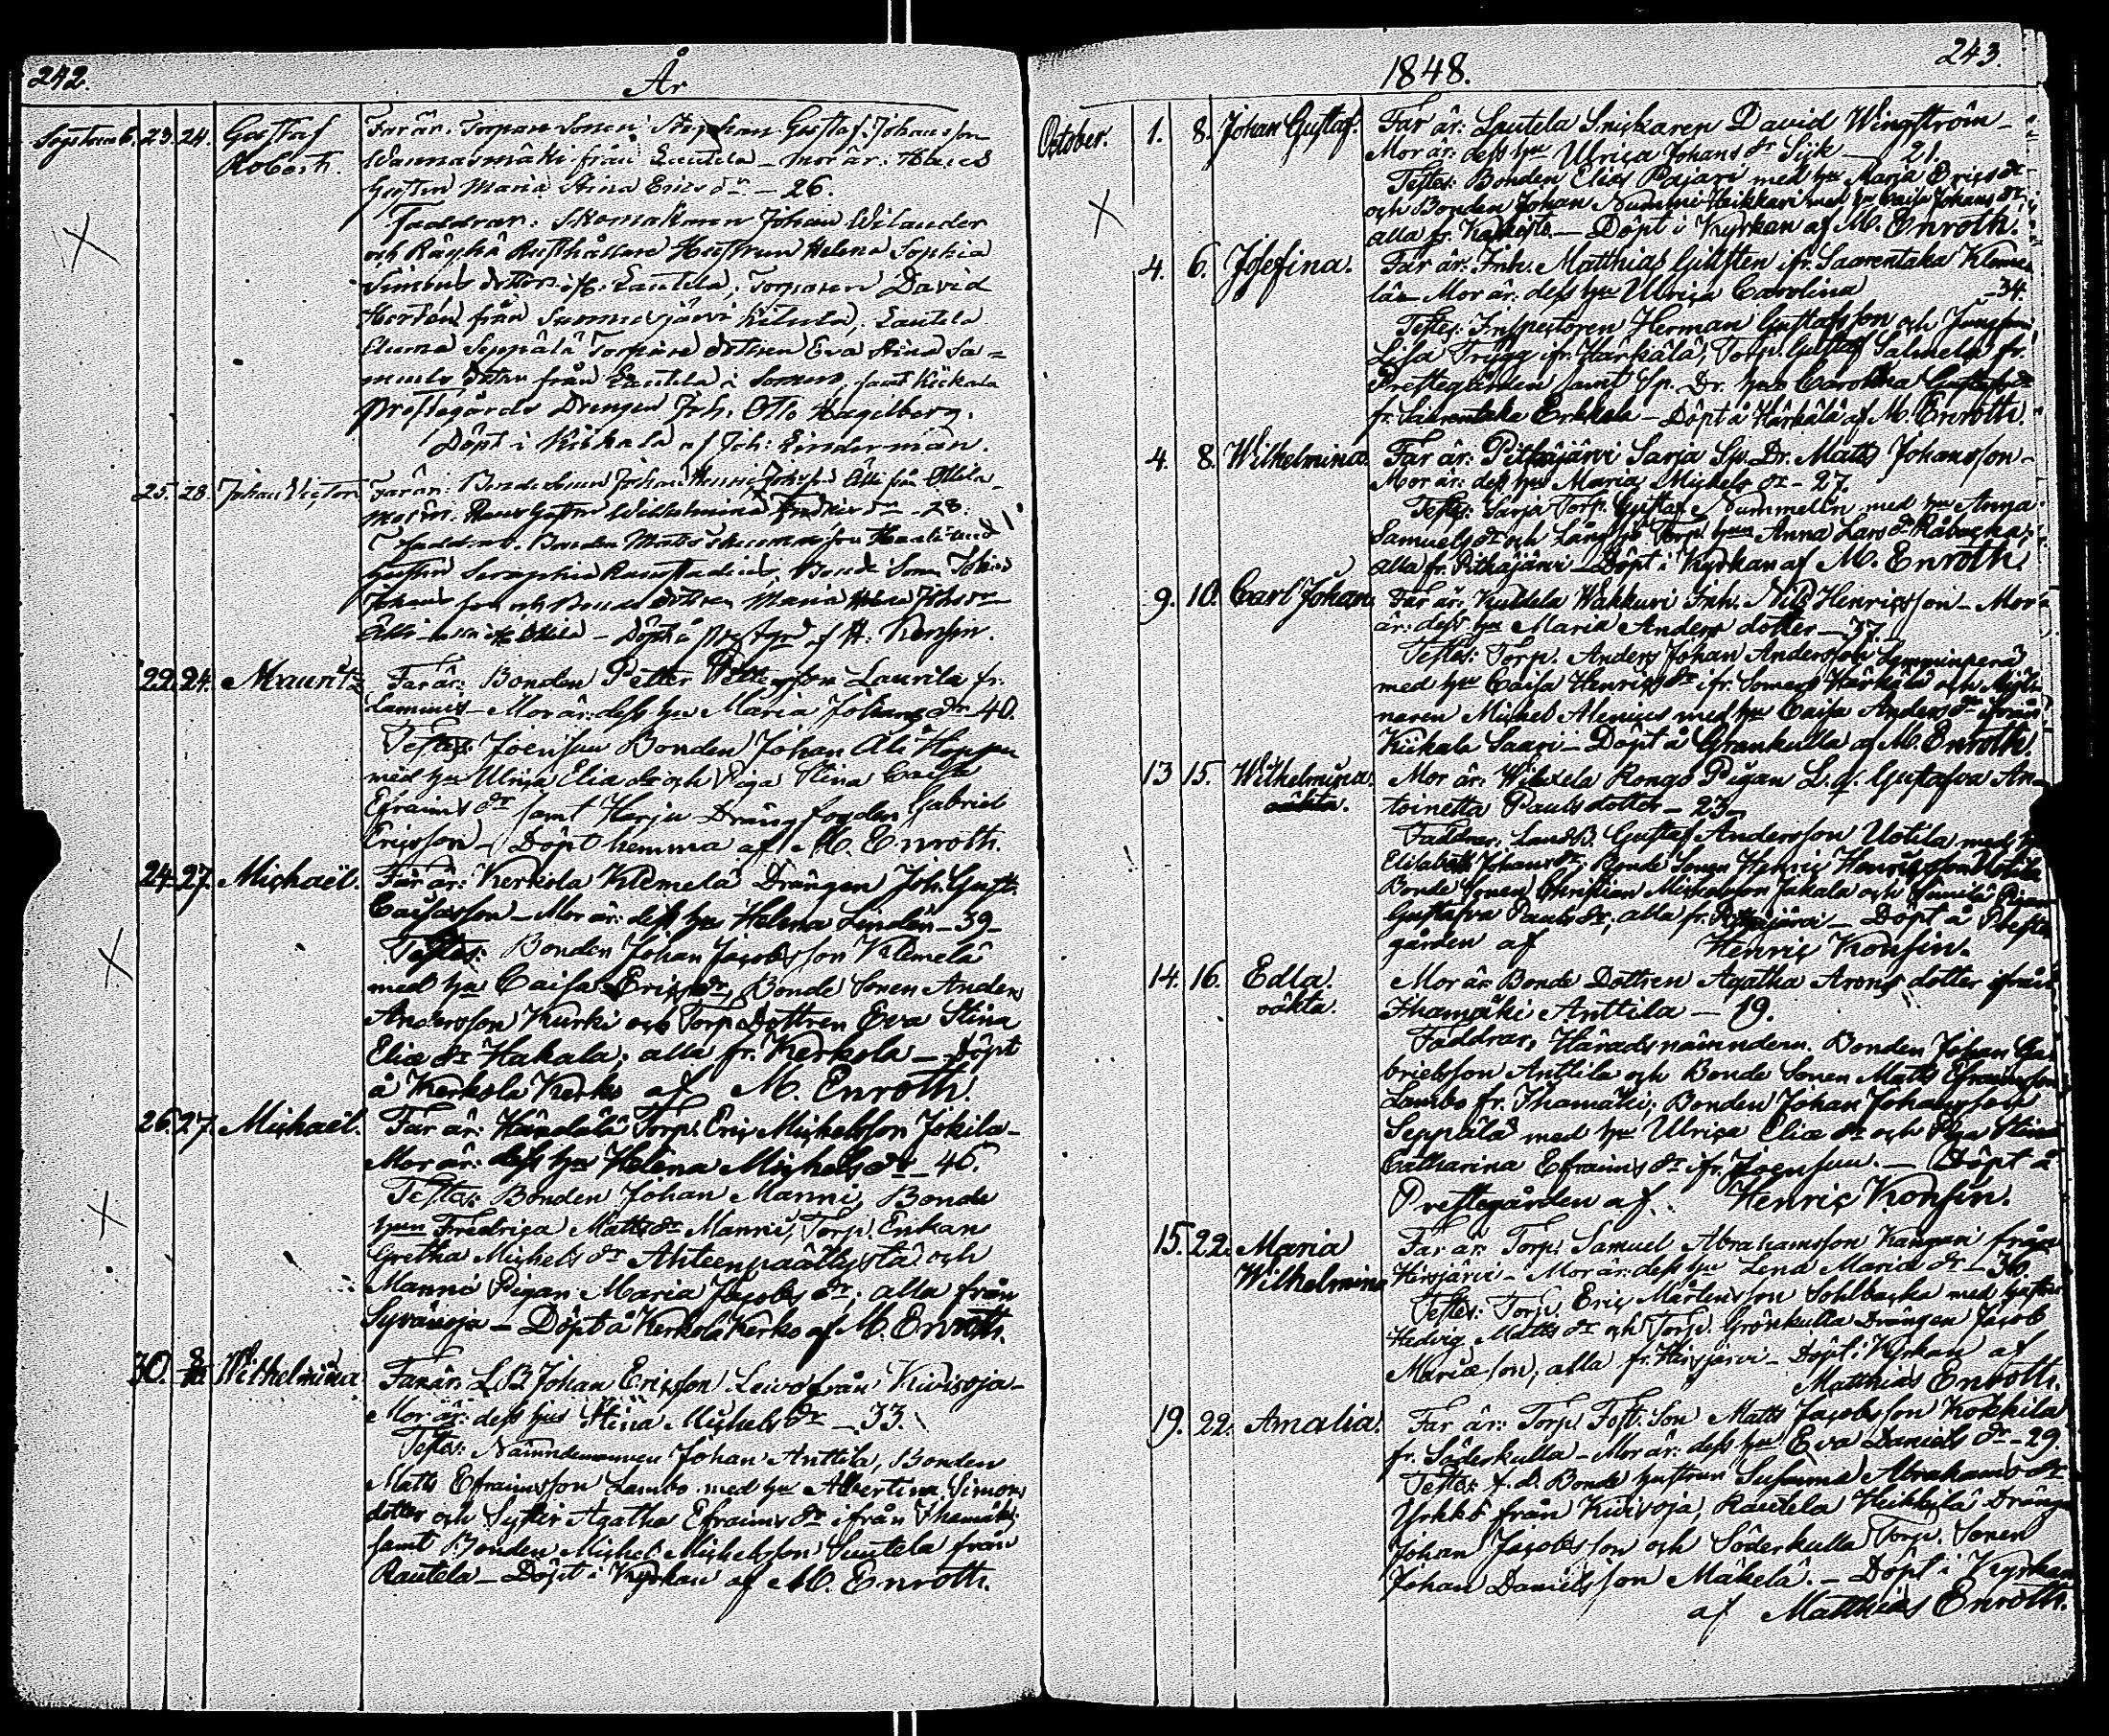 242.
År
Septemb. 23. 24. Gustaf Robert.
Far är: Torpare Sonen Stephan Gustaf Johansson
Wannasmäki från Lautela – Mor är: Hans
Hustru Maria Stina Ericsdr – 26.
Faddrar: Skomakaren Johan Wilander
och Räyhä Rusthållare Hustrun Helena Sophia
Simons dotter ifr. Lautela, Torparen David
Hortén från Summasjärvi Lautela
Seppälä Torpare dottren Eva Stina Sa-
muels dotter från Lautela i Somero, samt Kiikala
Prestegårds Drengen Joh. Otto Hagelberg.
Döpt i Kiikala af Joh: Linderman.
25. 28. Johan Victor
Far är: Bondesonen Johan Henric Johansson Älli från Ollila
Mor är: Hans Hustru Wilhelmina – 28.
Faddrar: Bonden Matts med
Hustru Seraphia Bonde Sonen
Johansson och Bonde dottren Maria
Älli – Ollila – Döpt å Prestgrd af H. Konsin.
22. 24. Mauritz
Far är: Bonden Petter Pettersson Laurila fr.
Lammis – Mor är: dess hu Maria Johans dr – 40.
Testes: Joensuu Bonden Johan Ali Hoppu
med hu Ulrica Eliæ dr och Piga Stina Caisa
Efraims dr samt Harju Drängfogden Gabriel
Ericsson – Döpt hemma af M. Enroth.
24. 27. Michaël.
Far är: Kerkola Klemelä Drängen Joh. Gust.
Caisasson – Mor är: dess hu Helena Lindén – 39 –
Testes: Bonden Johan Jacobsson Klemelä
med hu Caisa Erics dr, Bonde Sonen Anders
Andersson Kurki och Torp. Dottren Eva Stina
Eliæ dr Hakala; alla fr. Kerkola – Döpt
å Kerkola Kerko af M. Enroth.
26. 27. Michaël.
Far är: Händälä Torp. Eric Michelsson Jokila –
Mor är: dess hu Helena Michels dr – 46.
Testes: Bonden Johan Manni, Bonde
hun Fredrica Matts dr Manni, Torp. Enkan
Gretha Michels dr Ahteenpäällystä och
Manni Pigan Maria Jacobs dr; alla från
Syvänoja – Döpt å Kerkola Kerko af M. Enroth.
30. 8. Wilhelmina
Far är: L.B. Johan Ericsson Leivo från Kivisoja –
Mor är: dess hu Stina Michels dr – 33.
Testes: Nämndemannen Johan Anttila, Bonden
Matts Efraimsson Lambo med hu Albertina Simons
dotter och Syster Agatha Efraims dr ifrån Ihamäki
samt Bonden Michel Michelsson Suutela från
Rautela – Döpt i Kyrkan af M. Enroth.
1848.
243.
October. 1. 8. Johan Gustaf.
Far är: Lautela Snickaren David Wingström –
Mor är: dess hu Ulrica Johans dr Sijk – 21.
Testes: Bonden Elias Pajari med hu Maria Erics dr
och Bonden Johan Nummi Heikkari med hu Caisa Johans dr
alla fr. – Döpt i Kyrkan af M. Enroth.
4. 6. Josefina.
Far är: Inh. Matthias Gillsten ifr. Saarentaka Kleme-
lä – Mor är: dess hu Ulrica Carolina – 34.
Testes: Inspectoren Herman Gustafsson och Jungfrun
Lisa Trygg ifr. Härkälä, Torp. Gustaf Salmela fr.
Prestegården samt Sp. Dr. hus Carolina Gustafs dr
fr. Saarentaka Erkkala – Döpt å Härkälä af M. Enroth.
4. 8. Wilhelmina.
Far är: Pitkäjärvi Sarja Sp. Dr. Matts Johansson –
Mor är: dess hu Maria Michels dr – 27.
Testes: Sarja Torp. Gustaf Nummelin med hu Anna
Samuels dr och Långsjö Torp. hun Anna Lars dr Råbacka;
alla fr. Pitkäjärvi – Döpt i Kyrkan af M. Enroth.
9. 10. Carl Johan
Far är: Kultela Wakkuri Inh. Nils Henricsson – Mor
är: dess hu Maria Anders dotter – 37 –
Testes: Torp. Anders Johan Andersson Lamminperä
med hu Caisa Henrics dr ifr. Somero Härkälä och Mjöl-
naren Michel Alenius med hu Caisa Anders dr ifrån
Kiikala Saari – Döpt å Grankulla af M. Enroth.
13 15. Wilhelmina. oäkta.
Mor är: Wiluxela Rongo Pigan L. q. Gustafva An-
toinetta Pauls dotter – 23 –
Faddrar: Land B. Gustaf Andersson Uotila med hu
Elisabeth Johans dr; Bonde Sonen Henric Henricsson Uotila
Bonde Sonen Christian Michelsson Jakala och Pigan
Gustafva Pauls dr, alla fr. Pitkäjärvi – Döpt å Preste-
gården af Henric Konsin.
14. 16. Edla. oäkta.
Mor är Bonde Dottren Agatha Arons dotter ifrån
Ihamäki Anttila – 19.
Faddrar, Häradsnämndem. Bonden Johan Ga-
brielsson Anttila och Bonde Sonen Matts Efraimsson
Lambo fr. Ihamäki; Bonden Johan Johansson
Seppälä med hu Ulrica Eliæ dr och Piga Stina
Catharina Efraims dr ifr. Joensuu. – Döpt å
Prestegården af Henric Konsin.
15. 22. Maria Wilhelmina
Far är: Torp. Samuel Abrahamsson Kangari från
Hirsjärvi – Mor är: dess hu Lena Maria dr – 36
Testes: Torp. Eric Mårtensson Sohlbacka med hustru
Hedvig Matts dr och Torp. Grönkulla Drängen Jacob
Mariæson; alla fr. Hirsjärvi – Döpt i Kyrkan af
Matthias Enroth.
19. 22. Amalia.
Far är: Torp. Fost. Son Matts Jacobsson Kokkila
fr. Söderkulla – Mor är: dess hu Eva Daniels dr – 29.
Testes: f. d. Bonde hustrun Susanna Abrahams dr
Yrkkö från Kivisoja, Rautela Heikkilä Dränge
Johan Jacobsson och Söderkulla Torp. Sonen
Johan Danielsson Mäkelä. – Döpt i Kyrkan
af Matthias Enroth.